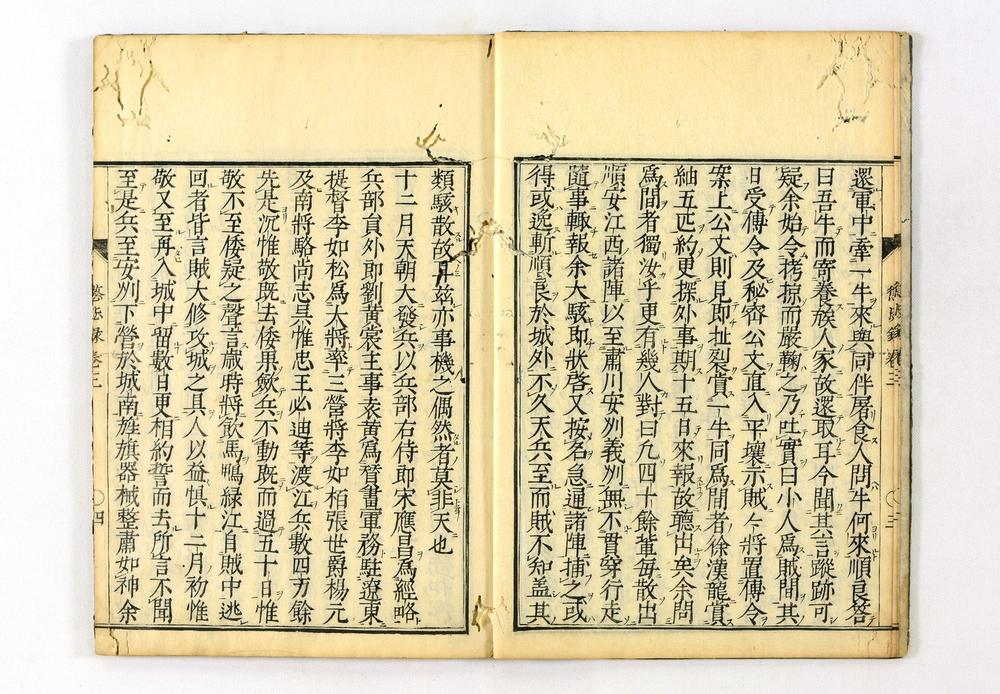 還軍中牽一牛來與同伴屠食人問牛何來順良答
曰吾牛而寄養族人家故還取耳今聞其言蹤跡可
疑余始令拷掠而嚴鞠之乃吐實曰小人爲賊間其
日受傳令及秘密公文直入平壤示賊々將置傳令
案上公文則見即扯裂賞一牛同爲間者徐漢龍賞
紬五匹約更探外事期十五日來報故聽出矣余問
爲間者獨汝乎更有幾人對曰凡四十餘輩每散出
順安江西諸陣以至肅川安州義州無不貫穿行走
隨事輒報余大駭即狀啓又按名急通諸陣捕之或
得或逸斬順良於城外不久天兵至而賊不知盖其
懲毖錄 卷三
三
類駭散故耳茲亦事機之偶然者莫非天也
十二月天朝大發兵以兵部右侍郎宋應昌爲經略
兵部員外郎劉黃裳主事袁黃爲賛畫軍務駐遼東
提督李如松爲大將率三營將李如栢張世爵楊元
及南將駱尚志吳惟忠王必迪等渡江兵數四万餘
先是沉惟敬既去倭果歛兵不動既而過五十日惟
敬不至倭疑之聲言歳時將飲馬鴨緑江自賊中逃
回者皆言賊大修攻城之具人以益惧十二月初惟
敬又至再入城中留數日更相約誓而去所言不聞
至是兵至安州下營於城南旌旗器械整肅如神余
懲毖録 卷三
四